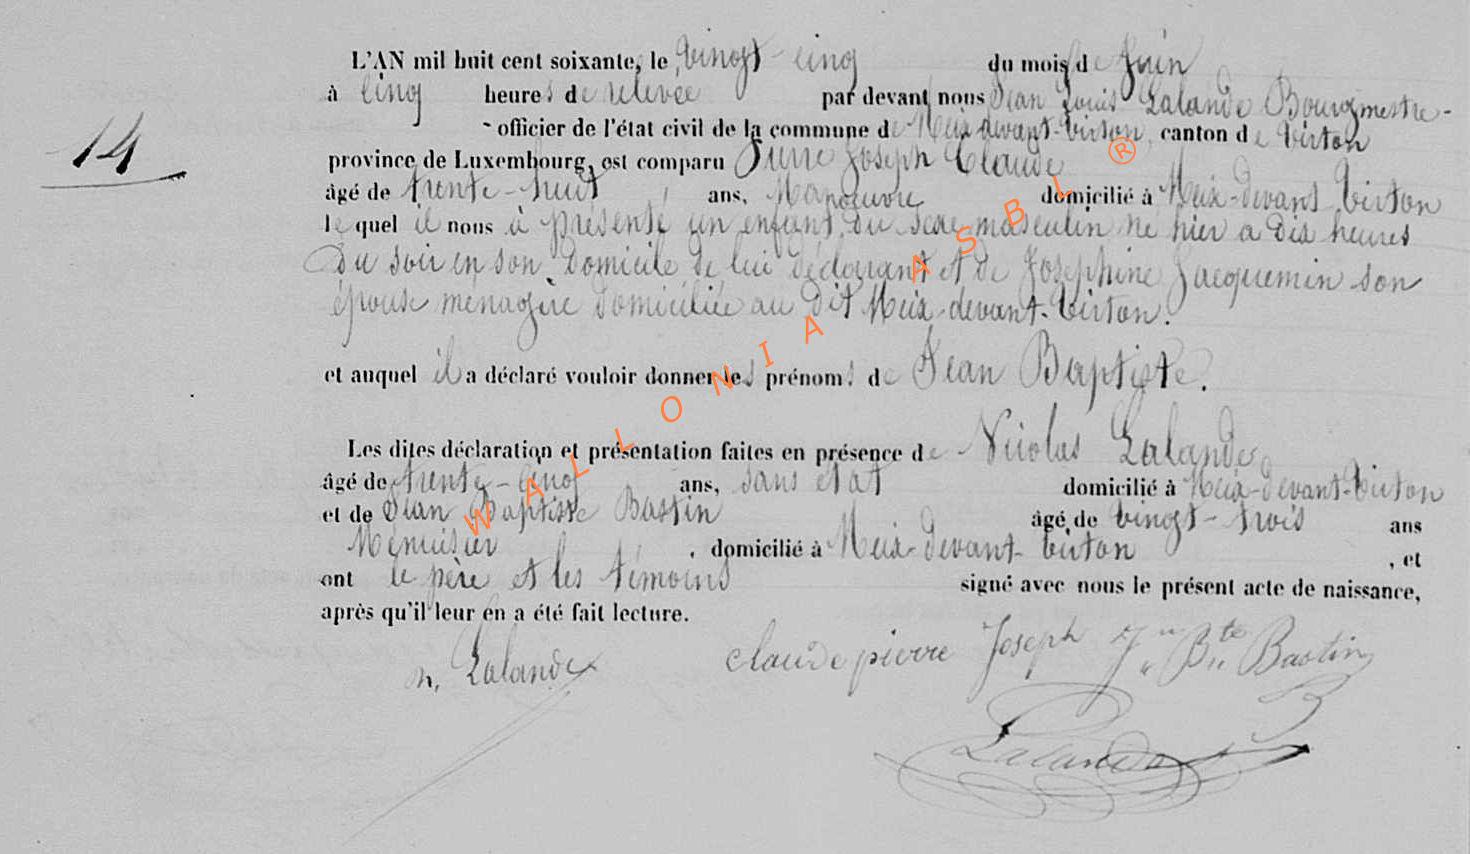 L'AN mil huit cent soixante, le vingt-cinq du mois de Juin
à cinq heures de relevée par devant nous Jean Louis Lalande Bourgmestre-
officier de l'état civil de la commune de Meix-devant-Virton, canton de Virton
14
province de Luxembourg, est comparu Pierre Joseph Claude
âgé de trente-huit ans, Manoeuvre domicilié à Meix-devant Virton
le quel il nous à présenté un enfant du sexe masculin né hier a dix heures
Du soir en son domicile de lui déclarant et de Joséphine Jacquemin son
épouse ménagère domiciliée au dit Meix-devant-Virton.
et auquel il a déclaré vouloir donner les prénoms de Jean Baptiste.
Les dites déclaration et présentation faites en présence de Nicolas Lalande
âgé de trente-cinq ans, sans etat domicilié à Meix-devant-Virton
et de Jean Baptiste Bastin âgé de vingt-trois ans
Menuisier, domicilié à Meix-devant-Virton, et
ont le père et les témoins signé avec nous le présent acte de naissance,
après qu'il leur en a été fait lecture.
n. Lalande claude pierre Joseph J„ Bte„ Bastin
Lalande
WALLONIA ASBL ®